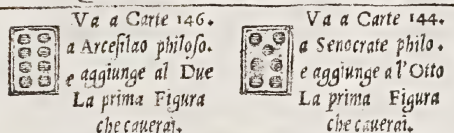 Va a Carte 146.
a Arceſilao philoſo.
e aggiunge al Due
La prima Figura
che cauerai.
Va a Carte 144.
a Senocrate philo.
e aggiunge a l'Otto
La prima Figura
che cauerai.